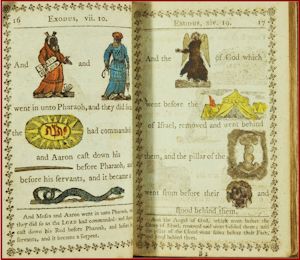 16 EXODUS, vii. 10.
And and
went in unto Pharaoh, and they did so
the had commanded
and Aaron cast down his
before Pharaoh, and
before his servants, and it became a
And Moses and Aaron went in unto Pharaoh, and
they did so as the LORD had commanded: and Aaron
cast down his Rod before Pharaoh, and before his
servants, and it became a Serpent.
EXODUS, xiv. 19. 17
And the of God which
went before the
of Israel, removed and went behind
them, and the pillar of the
went from before their and
stood behind them.
And the Angel of God, which went before the
Camp of Israel, removed and went behind them; and
the Pillar of the Cloud went from before their Face, and
stood behind them.
B 2